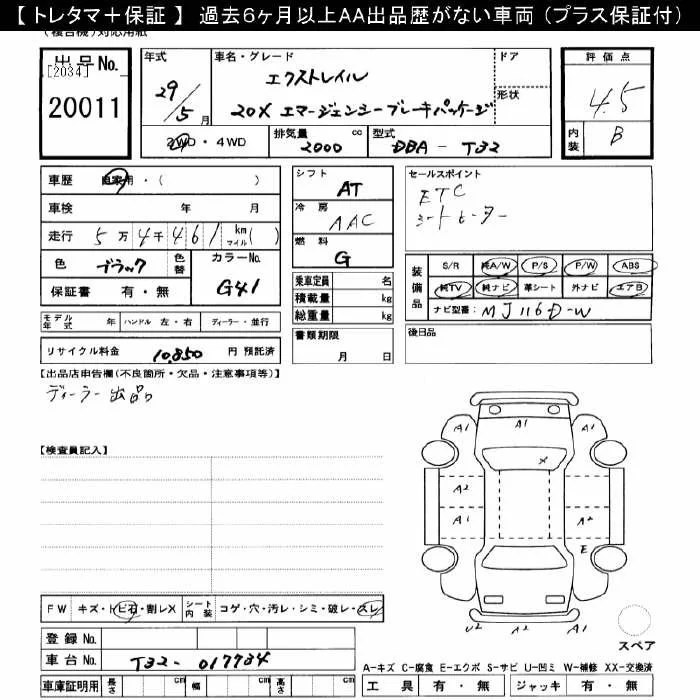 【 トレタマ＋保証 】 過去6ヶ月以上AA出品歴がない車両 (プラス保証付)
(複合機)対応用紙
出品No.
[2034]
20011
年式
29/5月
車名・グレード
エクストレイル
20X エマージェンシーブレーキパッケージ
ドア
形状
評価点
4.5
内装 B
2WD・4WD
排気量 2000 cc
型式 DBA - T32
車歴 自家用・( )
車検 年 月
走行 5万4千461 km マイル( )
色 ブラック 色替
カラーNo. G41
保証書 有・無
シフト AT
冷房 AAC
燃料 G
乗車定員 名
積載量 kg
総重量 kg
セールスポイント
ETC
シートヒーター
装備品
S/R 純A/W P/S P/W ABS
純TV 純ナビ 革シート 外ナビ エアB
ナビ型番: MJ116D-W
モデル年式 年 ハンドル 左・右 ディーラー・並行
リサイクル料金 10,850 円 預託済
書類期限
月 日
後日品
【出品店申告欄(不良箇所・欠品・注意事項等)】
ディーラー出品
【検査員記入】
A1 A1 A1
X
A2
A1 A2
E
U2 A2 A1
スペア
FW キズ・トビ石・割レX
シート内装 コゲ・穴・汚レ・シミ・破レ・スレ
登録 No.
車台 No. T32-017734
車庫証明用 長さ cm 幅 cm 高さ cm
A-キズ C-腐食 E-エクボ S-サビ U-凹ミ W-補修 XX-交換済
工具 有・無 ジャッキ 有・無